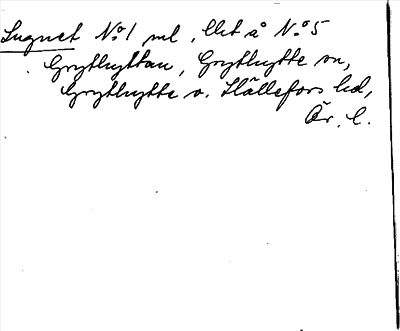 Lugnet No 1 ml, Ubt å No 5
Grythyttan, Grythytte sn,
Grythytte o. Hällefors hd,
Ör. l.